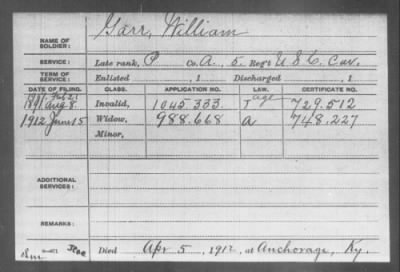 Garr, William
NAME OF SOLDIER:
SERVICE: Late rank, P Co. A, 5 Reg't U S C Cav.
TERM OF SERVICE: Enlisted , 1 Discharged , 1
DATE OF FILING. CLASS. APPLICATION NO. LAW. CERTIFICATE NO.
1891 Aug 8. Invalid, 1045.333. Age 729.512
1912 June 15 Widow, 988.668 a 748.227
Minor,
ADDITIONAL SERVICES:
REMARKS:
Died Apr 5, 1912, at Anchorage, Ky.